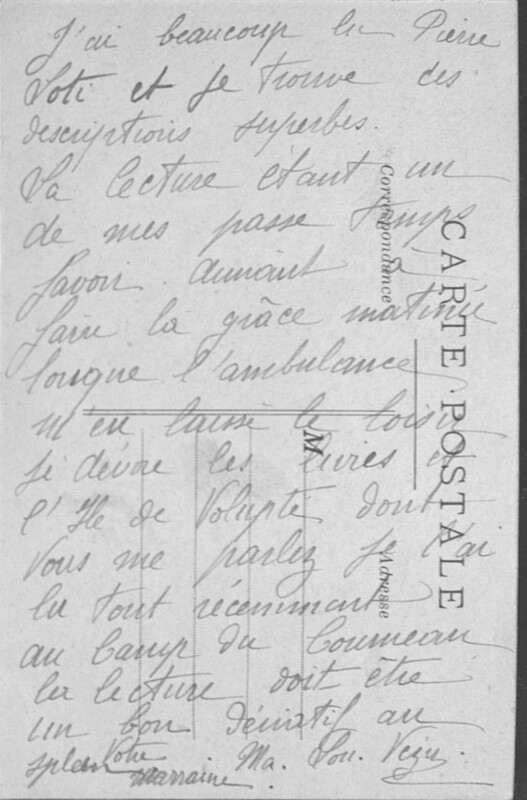 J'ai beaucoup lu Pierre
Loti et je trouve des
descriptions superbes.
La lecture étant un
de mes passe temps
favori. Aimant à
faire la grâce matinée
lorsque l'ambulance
m'en laisse le loisir
je dévore les livres et
l'Ile de Volupté dont
vous me parlez je l'ai
lu tout récemment
au Camp du Courneau
la lecture doit être
un bon dérivatif au
spleen Votre marraine Ma. Lou.
CARTE POSTALE
Correspondance
Adresse
M